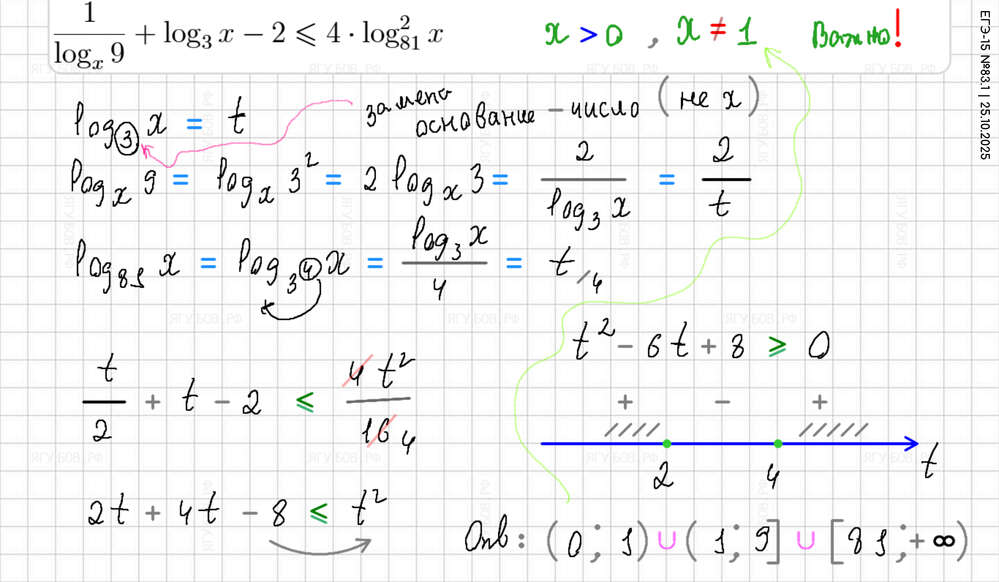 1/log_x 9 + log_3 x − 2 ⩽ 4 · log²_81 x
x > 0 , x ≠ 1 Важно!
ЕГЭ-15 №83.1 | 25.10.2025
log_3 x = t
замена
основание – число (не x)
log_x 9 = log_x 3² = 2 log_x 3 = 2/log_3 x = 2/t
log_81 x = log_3⁴ x = log_3 x/4 = t/4
t² − 6t + 8 ⩾ 0
t/2 + t − 2 ⩽ 4t²/16 4
+ − +
2 4 t
2t + 4t − 8 ⩽ t²
Отв: (0; 1) ∪ (1; 9] ∪ [81; +∞)
ЯГУБОВ.РФ